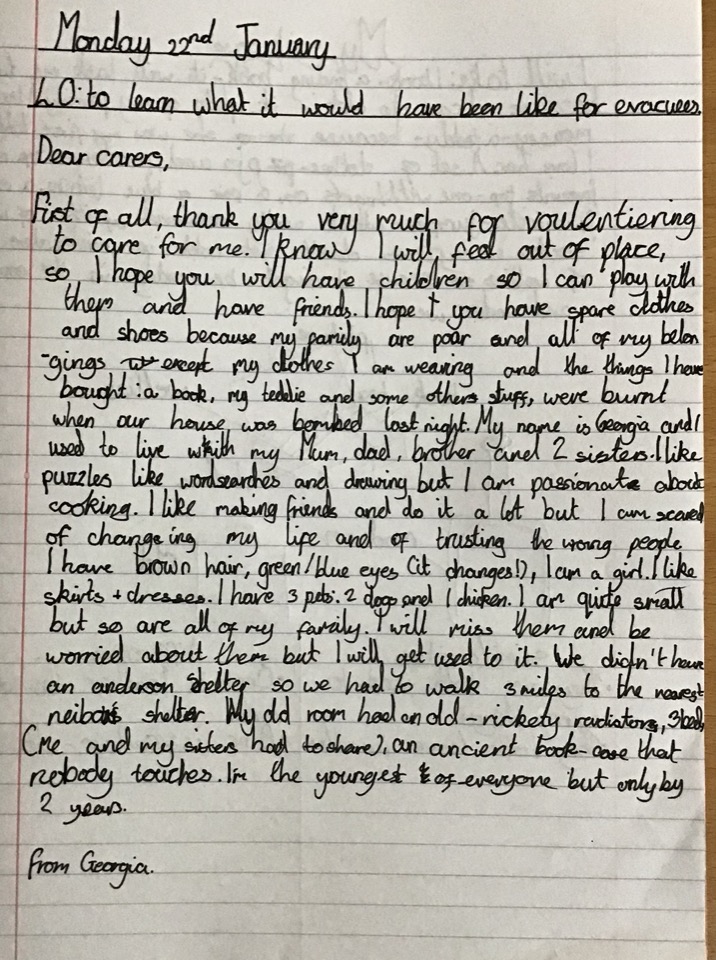 Monday 22nd January
L.O: to learn what it would have been like for evacuees.
Dear carers,
First of all, thank you very much for voulentiering
to care for me. I know I will feel out of place,
so I hope you will have children so I can play with
them and have friends. I hope you have spare clothes
and shoes because my family are poor and all of my belon
-gings except my clothes I am wearing and the things I have
bought: a book, my teddie and some others stuff, were burnt
when our house was bombed last night. My name is Georgia and I
used to live with my Mum, dad, brother and 2 sisters. I like
puzzles like wordsearches and drawing but I am passionate about
cooking. I like making friends and do it a lot but I am scared
of changeing my life and of trusting the wrong people
I have brown hair, green/blue eyes (it changes!), I am a girl. I like
skirts + dresses. I have 3 pets. 2 dogs and 1 chicken. I am quite small
but so are all of my family. I will miss them and be
worried about them but I will get used to it. We didn't have
an anderson shelter so we had to walk 3 miles to the nearest
neibours shelter. My old room had an old-rickety radiators, 3 beds
(me and my sisters had to share), an ancient book-case that
nobody touches. I'm the youngest of everyone but only by
2 years.
from Georgia.